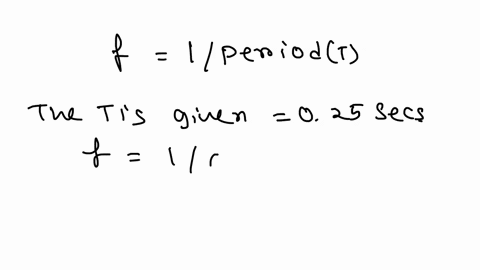 f = 1/period(T)
The T is given = 0.25 secs
f = 1/